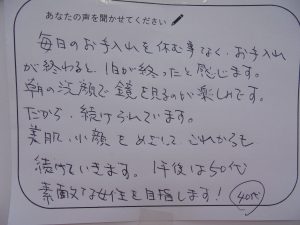 あなたの声を聞かせてください
毎日のお手入れを休む事なく、お手入れ
が終わると、1日が終ったと感じます。
朝の洗顔で鏡を見るのが楽しみです。
だから、続けられています。
美肌、小顔をめざして、これからも
続けていきます。1年後は50代
素敵な女性を目指します!
40代